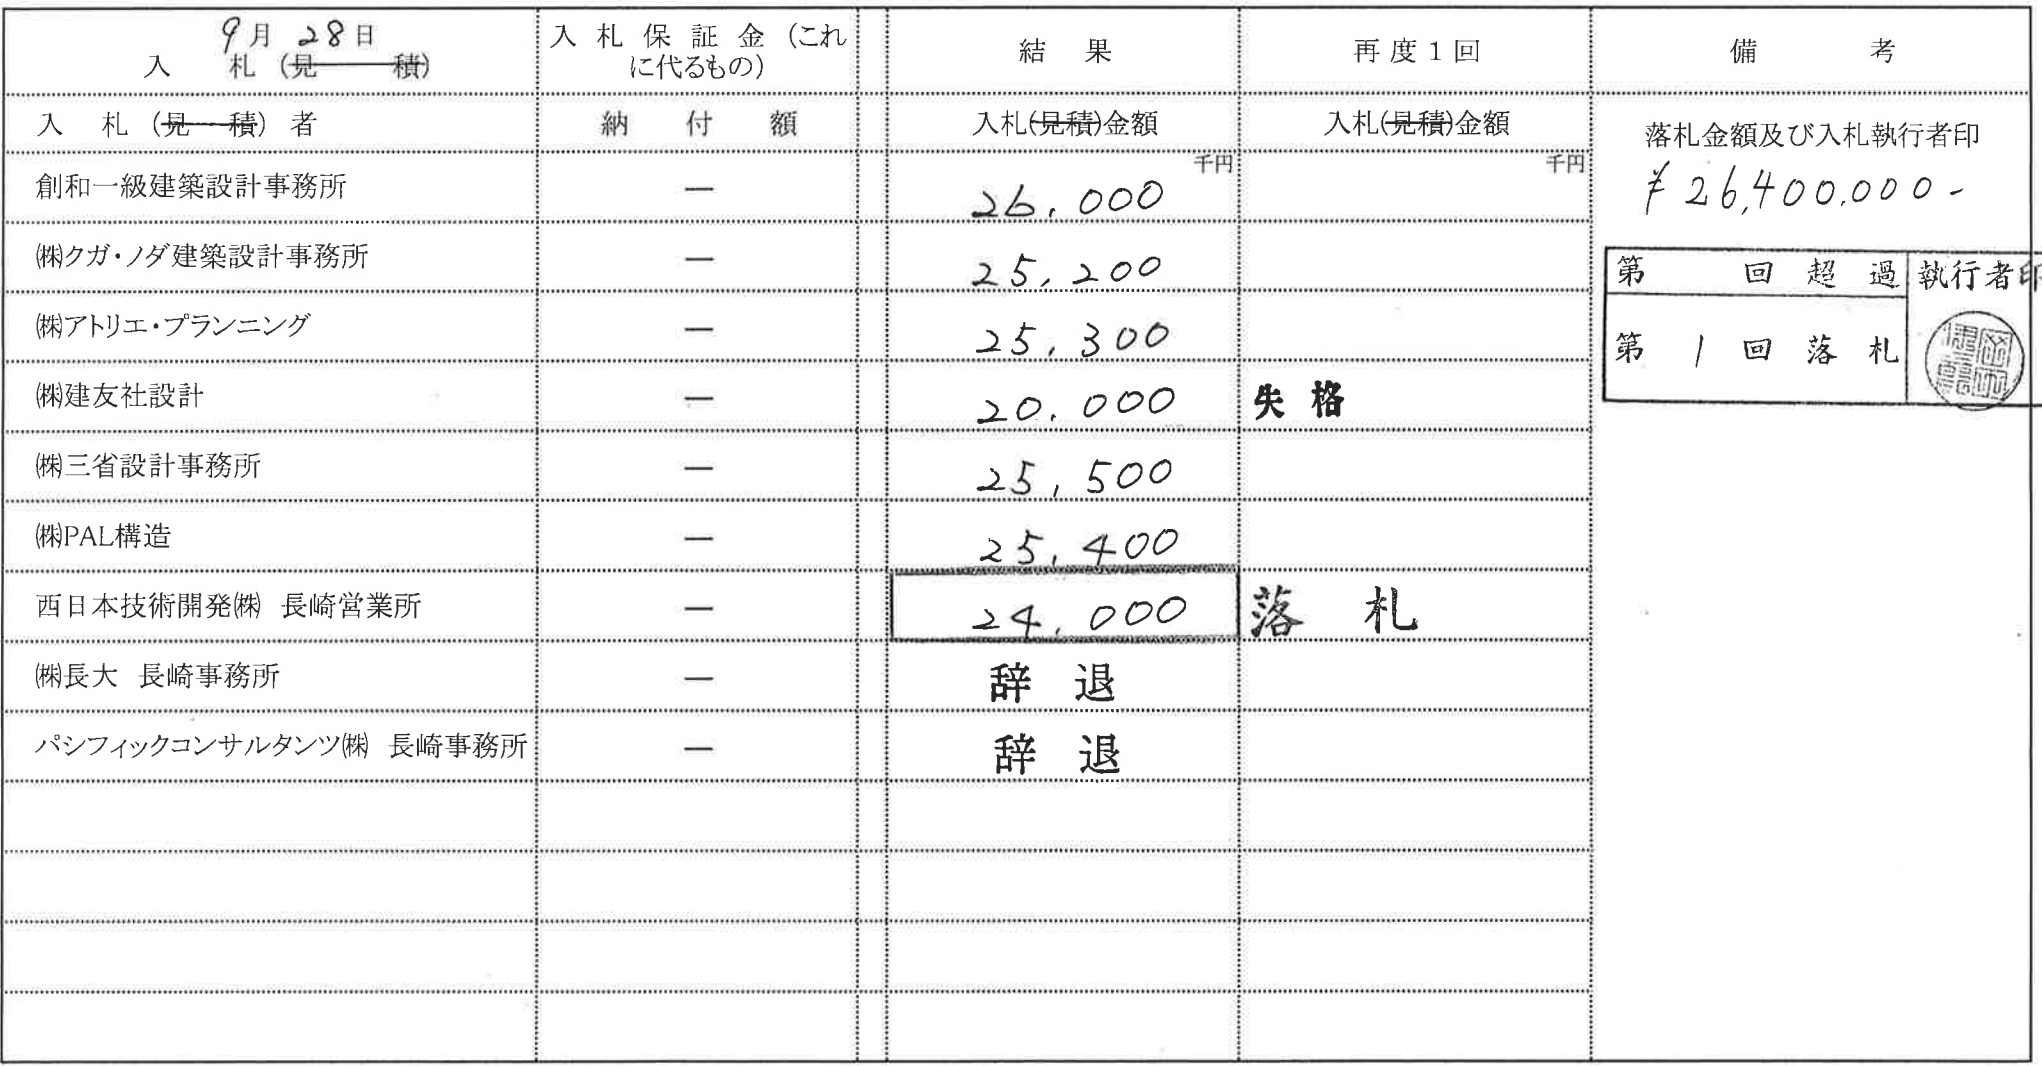 9月 28日 入札保証金(これ 結果 再度1回 備考
入札(見積) に代るもの)
入札(見積)者 納付額 入札(見積)金額 入札(見積)金額 落札金額及び入札執行者印
千円 千円
創和一級建築設計事務所 ー 26,000 ¥26,400,000-
㈱クガ・ノダ建築設計事務所 ー 25,200 第 回超過 執行者印
㈱アトリエ・プランニング ー 25,300 第1回落札
㈱建友社設計 ー 20,000 失格
㈱三省設計事務所 ー 25,500
㈱PAL構造 ー 25,400
西日本技術開発㈱ 長崎営業所 ー 24,000 落札
㈱長大 長崎事務所 ー 辞退
パシフィックコンサルタンツ㈱ 長崎事務所 ー 辞退